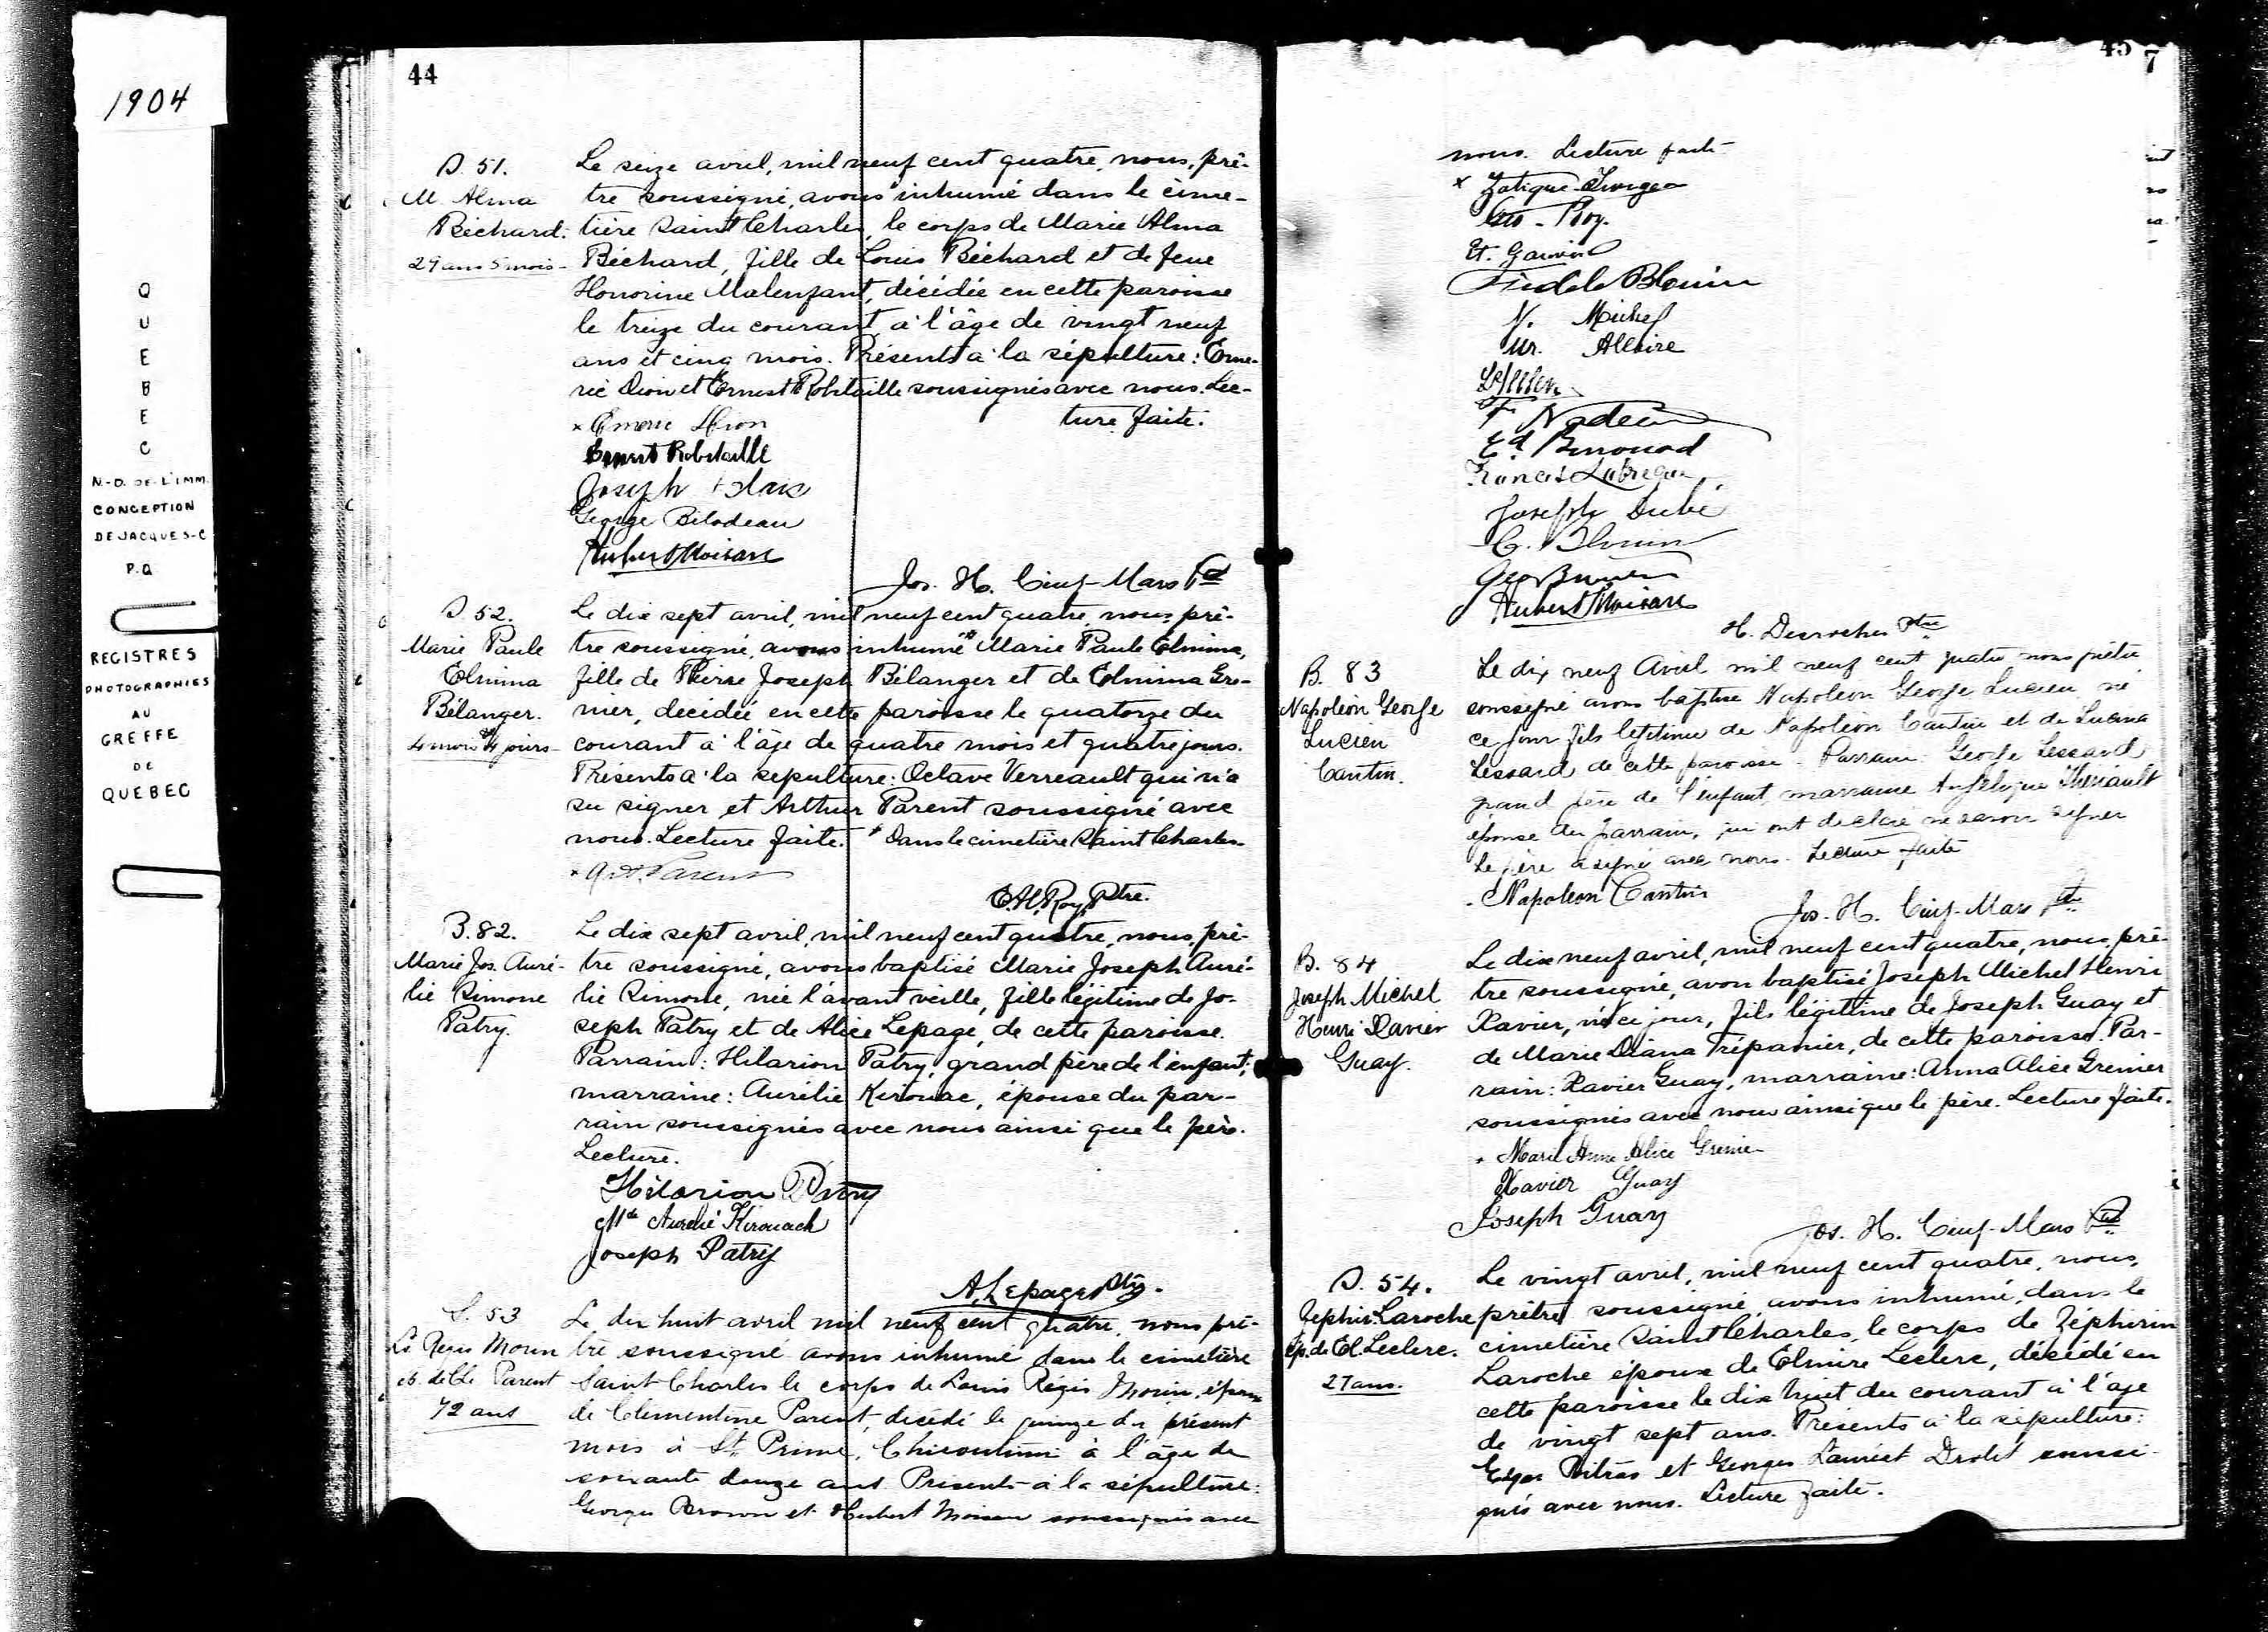 1904
QUEBEC
N.-D. DE L'IMM.
CONCEPTION
DE JACQUES-C
P.Q.
REGISTRES
PHOTOGRAPHIES
AU
GREFFE
DE
QUEBEC
44
S. 51.
M. Alma
Béchard.
29 ans 5 mois
Le seize avril, mil neuf cent quatre, nous, prê-
tre soussigné, avons inhumé dans le cime-
tière Saint Charles, le corps de Marie Alma
Béchard, fille de Louis Béchard et de feue
Honorine Malenfant, décédée en cette paroisse
le treize du courant, à l'âge de vingt neuf
ans et cinq mois. Présents à la sépulture: Eme-
ric Dion et Ernest Robitaille soussignés avec nous. Lec-
ture faite.
x Emeric Dion
Ernest Robitaille
Joseph
George Bilodeau
Hubert Moisan
Jos. H. Cinq-Mars Ptre
S. 52.
Marie Paule
Elmina
Bélanger.
4 mois 4 jours
Le dix sept avril, mil neuf cent quatre, nous, prê-
tre soussigné, avons inhumé * Marie Paule Elmina,
fille de Pierre Joseph Bélanger et de Elmina Gre-
nier, decédée en cette paroisse le quatorze du
courant à l'âge de quatre mois et quatre jours.
Présents à la sepulture: Octave Verreault qui n'a
su signer et Arthur Parent soussigné avec
nous. Lecture faite. * Dans le cimetière Saint Charles
x Art. Parent
Roy, Ptre.
B. 82.
Marie Jos. Auré-
lie Simone
Patry.
Le dix sept avril, mil neuf cent quatre, nous, prê-
tre soussigné, avons baptisé Marie Joseph Auré-
lie Simone, née l'avant veille, fille légitime de Jo-
seph Patry et de Alice Lepage, de cette paroisse.
Parrain: Hilarion Patry, grand père de l'enfant;
marraine: Aurélie Kerouac, épouse du par-
rain soussignés avec nous ainsi que le père.
Lecture.
Hilarion Patry
Aurelié Kirouack
Joseph Patry
A. Lepage Ptre.
S. 53
Ls Régis Morin
ép. de Cle Parent
72 ans
Le dix huit avril mil neuf cent quatre, nous prê-
tre soussigné avons inhumé dans le cimetière
Saint Charles le corps de Louis Régis Morin, époux
de Clementine Parent, décédé le quinze du présent
mois à St Prime, Chicoutimi à l'âge de
soixante douze ans. Présents à la sépulture:
Georges Brown et Hubert Moisan soussignés avec
45 7
nous. Lecture faite
x Zotique
Geo. Roy.
Et.
Fidele Blouin
N. Michel
Ur. Allaire
F. Nadeau
Ed
Francis Labrecque
Joseph Dubé
Blouin
Geo Brown
Hubert Moisan
H. Desroches Ptre
B. 83
Napoléon George
Lucien
Cantin.
Le dix neuf Avril mil neuf cent quatre nous prêtre
soussigné avons baptisé Napoléon George Lucien, né
ce jour fils legitime de Napoléon Cantin et de Luana
Lessard de cette paroisse. Parrain: George Lessard
grand père de l'enfant, marraine Angelique Thériault
épouse du parrain, qui ont déclaré ne savoir signer
Le père a signé avec nous. Lecture faite
Napoleon Cantin
Jos. H. Cinq-Mars Ptre
B. 84
Joseph Michel
Henri Xavier
Guay.
Le dix neuf avril, mil neuf cent quatre, nous, prê-
tre soussigné, avon baptisé Joseph Michel Henri
Xavier, né ce jour, fils légitime de Joseph Guay et
de Marie Diana Trépanier, de cette paroisse. Par-
rain: Xavier Guay, marraine: Anna Alice Grenier
soussignés avec nous ainsi que le père. Lecture faite.
x Marie Anna Alice Grenier
Xavier Guay
Joseph Guay
Jos. H. Cinq-Mars Ptre
S. 54.
Zephir. Laroche
ép. de El. Leclerc.
27 ans.
Le vingt avril, mil neuf cent quatre, nous,
prêtre soussigné, avons inhumé, dans le
cimetière Saint Charles, le corps de Zéphirin
Laroche époux de Elmire Leclerc, décédé en
cette paroisse le dix huit du courant à l'âge
de vingt sept ans. Présents à la sépulture:
Edgar Pitras et Georges Lauréat Drolet soussi-
gnés avec nous. Lecture faite.